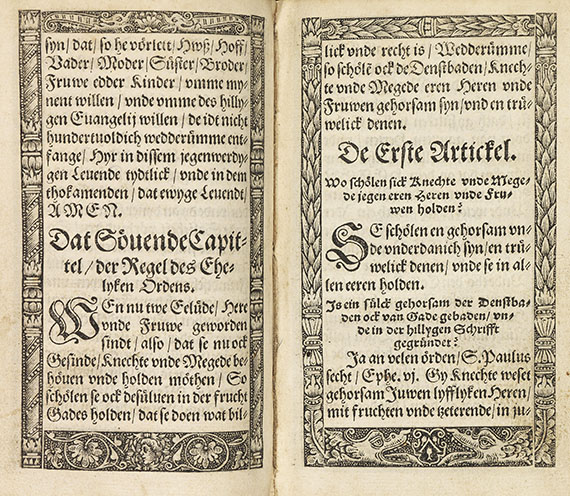 syn/ dat/ so he vörlett/ Hwß/ Hoff/
Vader/ Moder/ Süster/ Broder/
Fruwe edder Kinder/ vmme my-
nent willen/ vnde vmme des hilly-
gen Euangelij willen/ de idt nicht
hundertuoldich wedderümme ent-
fange/ Hyr in dissem jegenwerdy-
gen Leuende tydtlick/ vnde in dem
thokamenden/ dat ewyge Leuendt/
AMEN.
Dat Söuende Capit-
tel/ der Regel des Ehe-
lyken Ordens.
WEn nu twe Eelüde/ Here
vnde Fruwe geworden
sindt/ also/ dat se nu ock
Gesinde/ Knechte vnde Megede be-
höuen vnde holden möthen/ So
schölen se ock desüluen in der frucht
Gades holden/ dat se doen wat bil-
lick vnde recht is/ Wedderümme/
so schölē ock de Denstbaden/ Knech-
te vnde Megede eren Heren vnde
Fruwen gehorsam syn/ vnd en trü-
welick denen.
De Erste Artickel.
Wo schölen sick Knechte vnde Mege-
de jegen eren Heren vnde Fru-
wen holden?
SE schölen en gehorsam vn-
de vnderdanich syn/ en trü-
welick denen/ vnde se in al-
len eeren holden.
Is ein sülck gehorsam der Denstba-
den ock van Gade gebaden/ vn-
de in der hillygen Schrifft
gegründet?
Ja an velen örden/ S. Paulus
secht/ Ephe. vj. Gy Knechte weset
gehorsam Juwen lyfflyken Heren/
mit fruchten vnde tzeterende/ in ju-